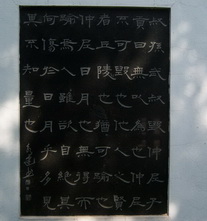 叔孫武叔毀仲尼子
貢曰無以為也仲尼
不可毀也他人之賢
者丘陵也猶可踰也
仲尼日月也無得而
踰焉人雖欲自絕其
何傷於日月乎多見
其不知量也